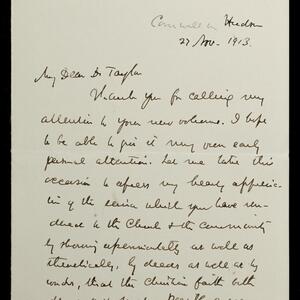 Cornwall on Hudson
27 Nov. 1913.
My Dear Dr Taylor
Thank you for calling my
attention to your new volume. I hope
to be able to give it my own early
personal attention. Let me take this
occasion to express my hearty apprecia-
tion of the service which you have ren-
dered to the Church & the community
by showing experimentally as well as
theoretically, by deeds as well as by
words, that the Christian faith